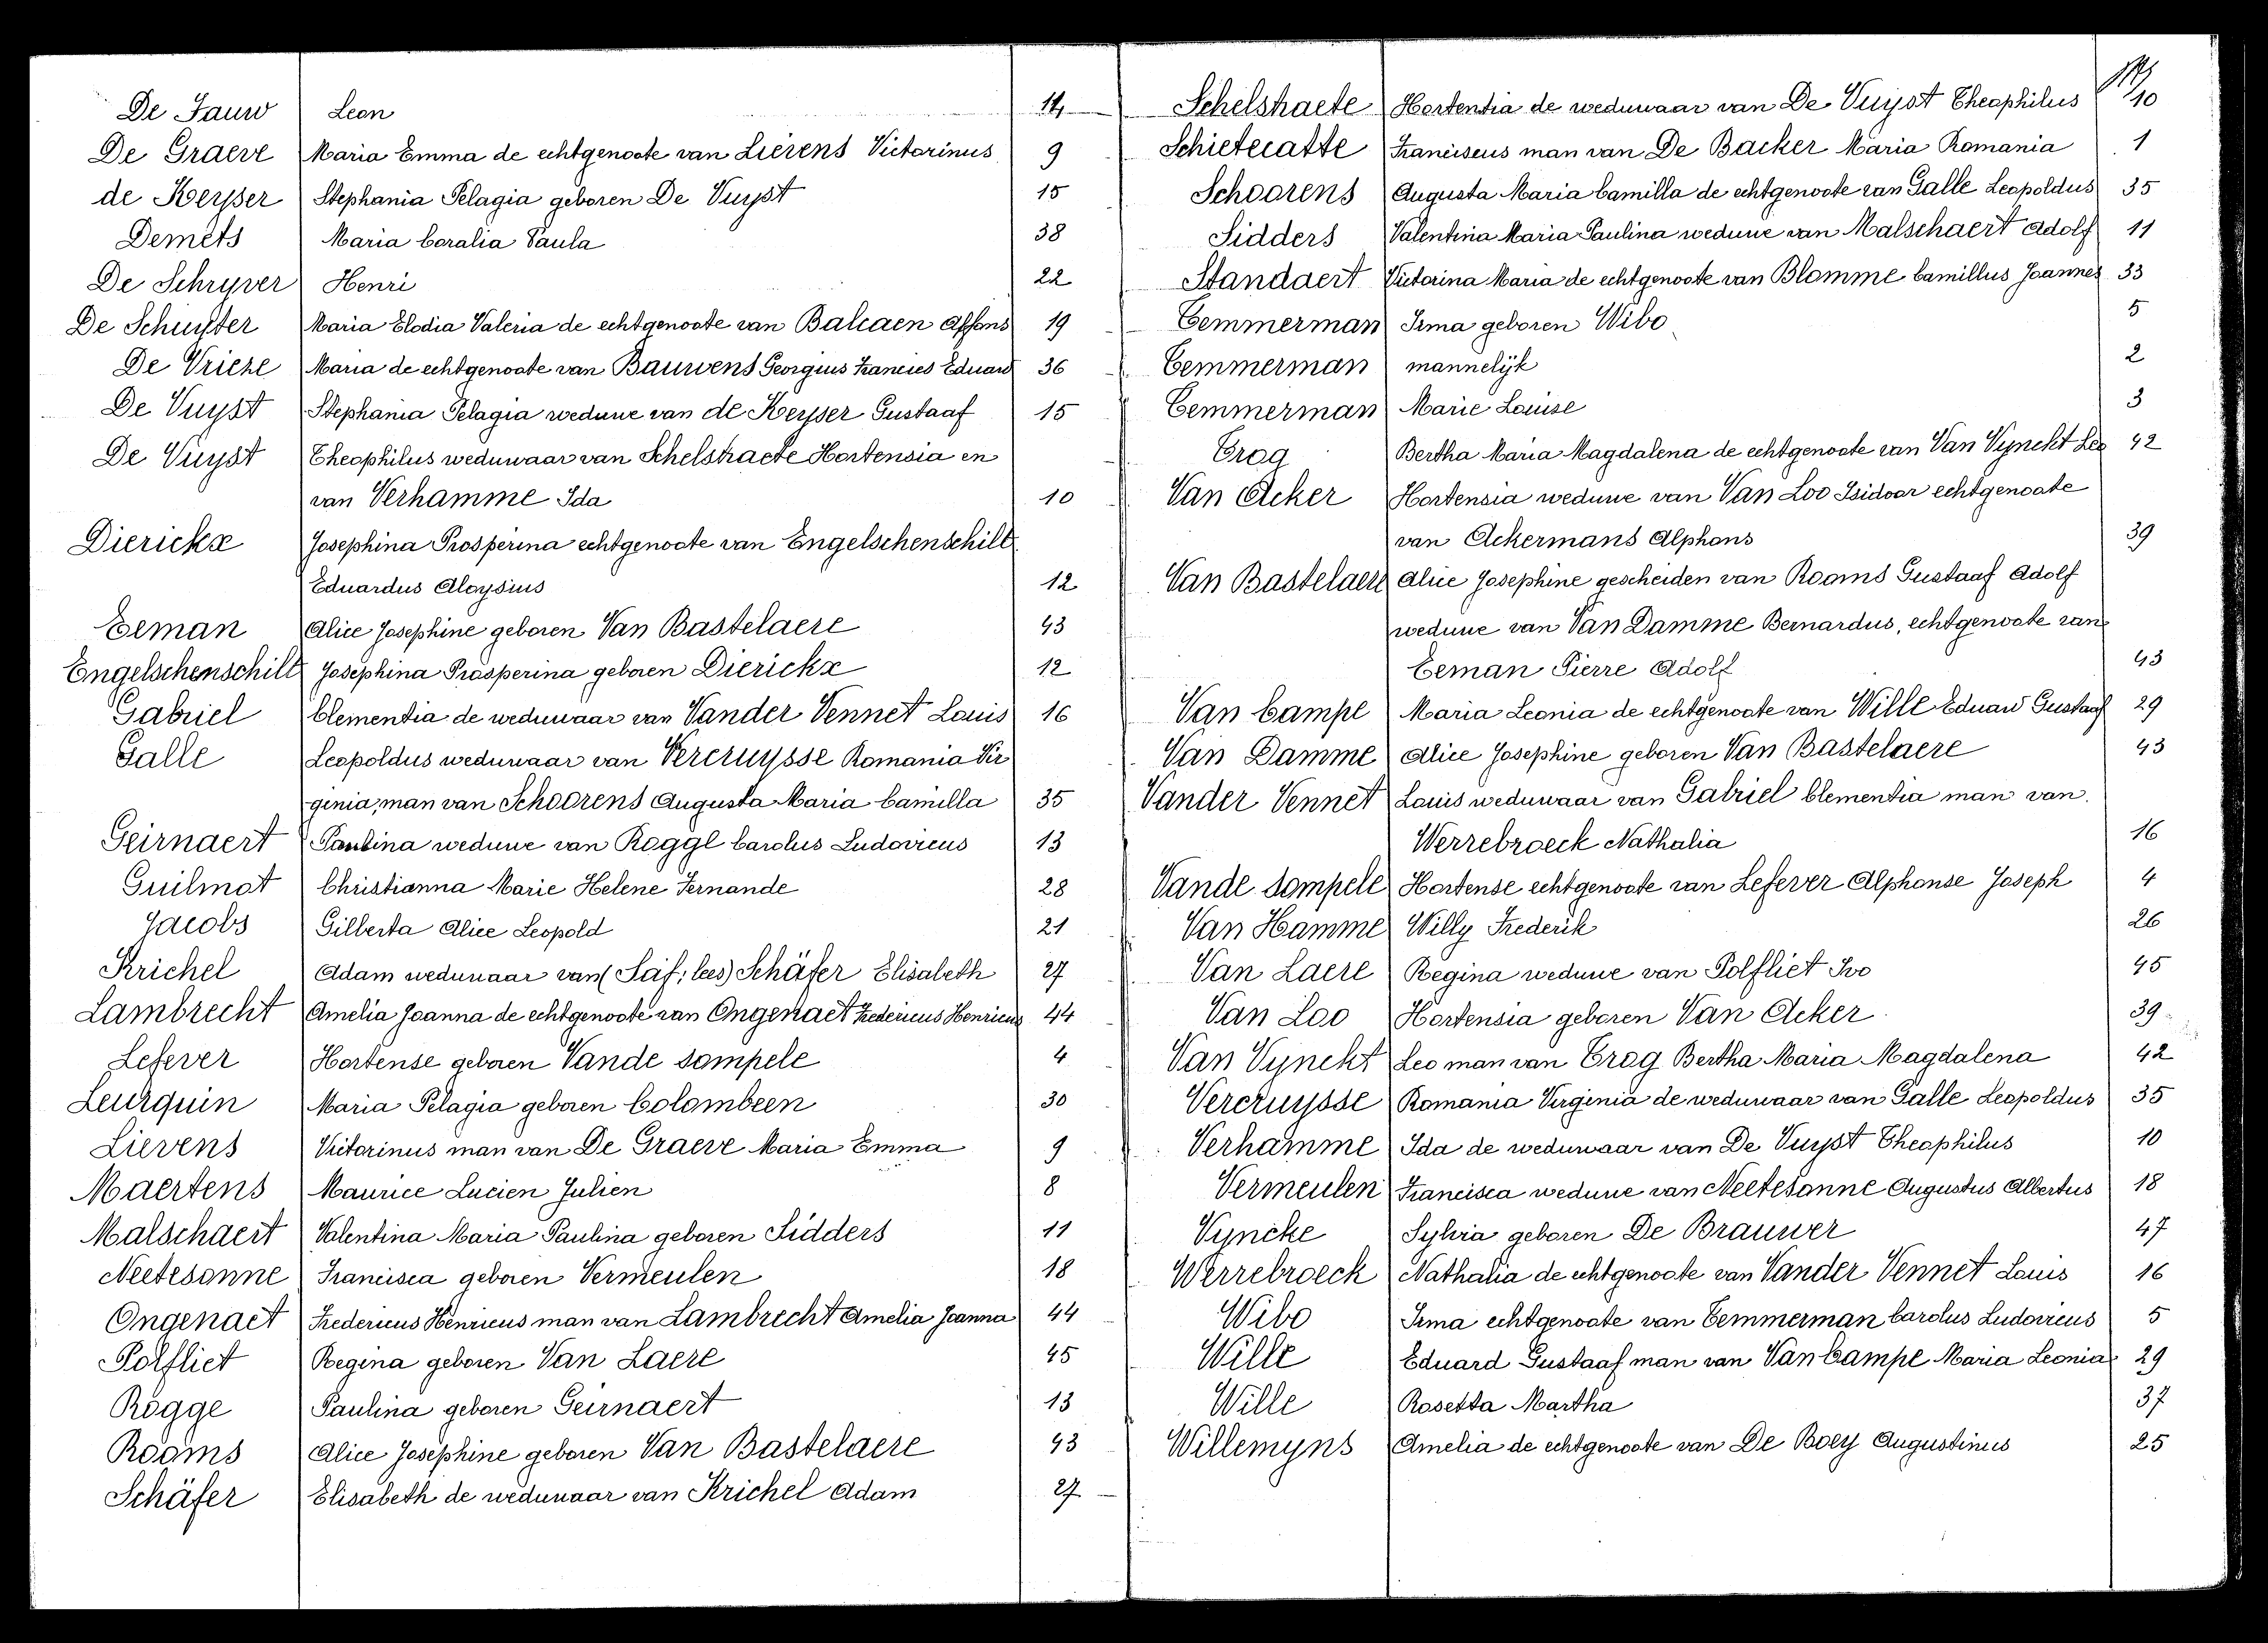 De Jauw Leon 14
De Graeve Maria Emma de echtgenoote van Lievens Victorinus 9
de Keyser Stephania Pelagia geboren De Vuyst 15
Demets Maria Coralia Paula 38
De Schryver Henri 22
De Schuyter Maria Elodia Valeria de echtgenoote van Balcaen Alfons 19
De Vrieze Maria de echtgenoote van Bauwens Georgius Francies Eduard 36
De Vuyst Stephania Pelagia weduwe van de Keyser Gustaaf 15
De Vuyst Theophilus weduwaar van Schelstraete Hortensia en
van Verhamme Ida 10
Dierickx Josephina Prosperina echtgenoote van Engelschenschilt
Eduardus Aloysius 12
Eeman Alice Josephine geboren Van Bastelaere 43
Engelschenschilt Josephina Prosperina geboren Dierickx 12
Gabriel Clementia de weduwaar van Vander Vennet Louis 16
Galle Leopoldus weduwaar van Vercruysse Romania Vir
ginia, man van Schoorens Augusta Maria Camilla 35
Geirnaert Paulina weduwe van Rogge Carolus Ludovicus 13
Guilmot Christianna Marie Helene Fernande 28
Jacobs Gilberta Alice Leopold 21
Krichel Adam weduwaar van (Saf; lees) Schäfer Elisabeth 27
Lambrecht Amelia Joanna de echtgenoote van Ongenaet Fredericus Henricus 44
Lefever Hortense geboren Vande Sompele 4
Leurquin Maria Pelagia geboren Colombeen 30
Lievens Victorinus man van De Graeve Maria Emma 9
Maertens Maurice Lucien Julien 8
Malschaert Valentina Maria Paulina geboren Sidders 11
Neetesonne Francisca geboren Vermeulen 18
Ongenaet Fredericus Henricus man van Lambrecht Amelia Joanna 44
Polfliet Regina geboren Van Laere 45
Rogge Paulina geboren Geirnaert 13
Rooms Alice Josephine geboren Van Bastelaere 43
Schäfer Elisabeth de weduwaar van Krichel Adam 27
Schelstraete Hortentia de weduwaar van De Vuyst Theophilus 10
Schietecatte Franciscus man van De Backer Maria Romania 1
Schoorens Augusta Maria Camilla de echtgenoote van Galle Leopoldus 35
Sidders Valentina Maria Paulina weduwe van Malschaert Adolf 11
Standaert Victorina Maria de echtgenoote van Blomme Camillus Joannes 33
Temmerman Irma geboren Wibo 5
Temmerman mannelijk 2
Temmerman Marie Louise 3
Trog Bertha Maria Magdalena de echtgenoote van Van Vynckt Leo 42
Van Acker Hortensia weduwe van Van Loo Isidoor echtgenoote
van Ackermans Alphons 39
Van Bastelaere Alice Josephine gescheiden van Rooms Gustaaf Adolf
weduwe van Van Damme Bernardus, echtgenoote van
Eeman Pierre Adolf 43
Van Campe Maria Leonia de echtgenoote van Wille Eduard Gustaaf 29
Van Damme Alice Josephine geboren Van Bastelaere 43
Vander Vennet Louis weduwaar van Gabriel Clementia man van
Werrebroeck Nathalia 16
Vande Sompele Hortense echtgenoote van Lefever Alphonse Joseph 4
Van Hamme Willy Frederik 26
Van Laere Regina weduwe van Polfliet Ivo 45
Van Loo Hortensia geboren Van Acker 39
Van Vynckt Leo man van Trog Bertha Maria Magdalena 42
Vercruysse Romania Virginia de weduwaar van Galle Leopoldus 35
Verhamme Ida de weduwaar van De Vuyst Theophilus 10
Vermeulen Francisca weduwe van Neetesonne Augustus Albertus 18
Vyncke Sylvia geboren De Brauwer 47
Werrebroeck Nathalia de echtgenoote van Vander Vennet Louis 16
Wibo Irma echtgenoote van Temmerman Carolus Ludovicus 5
Wille Eduard Gustaaf man van Van Campe Maria Leonia 29
Wille Rosetta Martha 37
Willemyns Amelia de echtgenoote van De Boey Augustinus 25